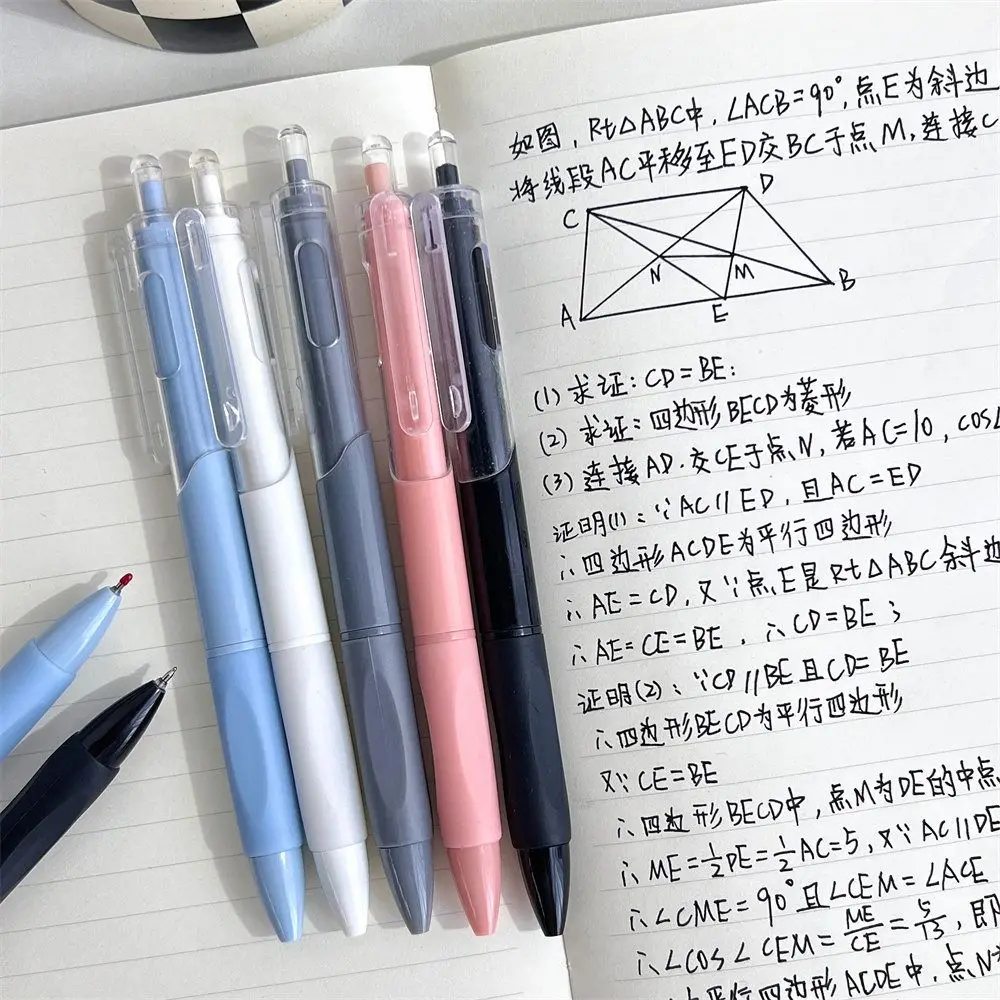 如图，Rt△ABC中，∠ACB=90°，点E为斜边
将线段AC平移至ED交BC于点M，连接C
D
C
N
M
B
A
E
(1) 求证：CD=BE；
(2) 求证：四边形BECD为菱形
(3) 连接AD.交CE于点N，若AC=10，cos∠
证明(1)：∵AC∥ED，且AC=ED
∴四边形ACDE为平行四边形
∴AE=CD，又∵点E是Rt△ABC斜边
∴AE=CE=BE．∴CD=BE；
证明(2)：∵CD∥BE且CD=BE
∴四边形BECD为平行四边形
又∵CE=BE
∴四边形BECD中，点M为DE的中点
∴ME=½DE=½AC=5，又∵AC∥DE
∴∠CME=90°且∠CEM=∠ACE
∴∠COS∠CEM=ME/CE=5/13，即
平行四边形ACDE中，点N为